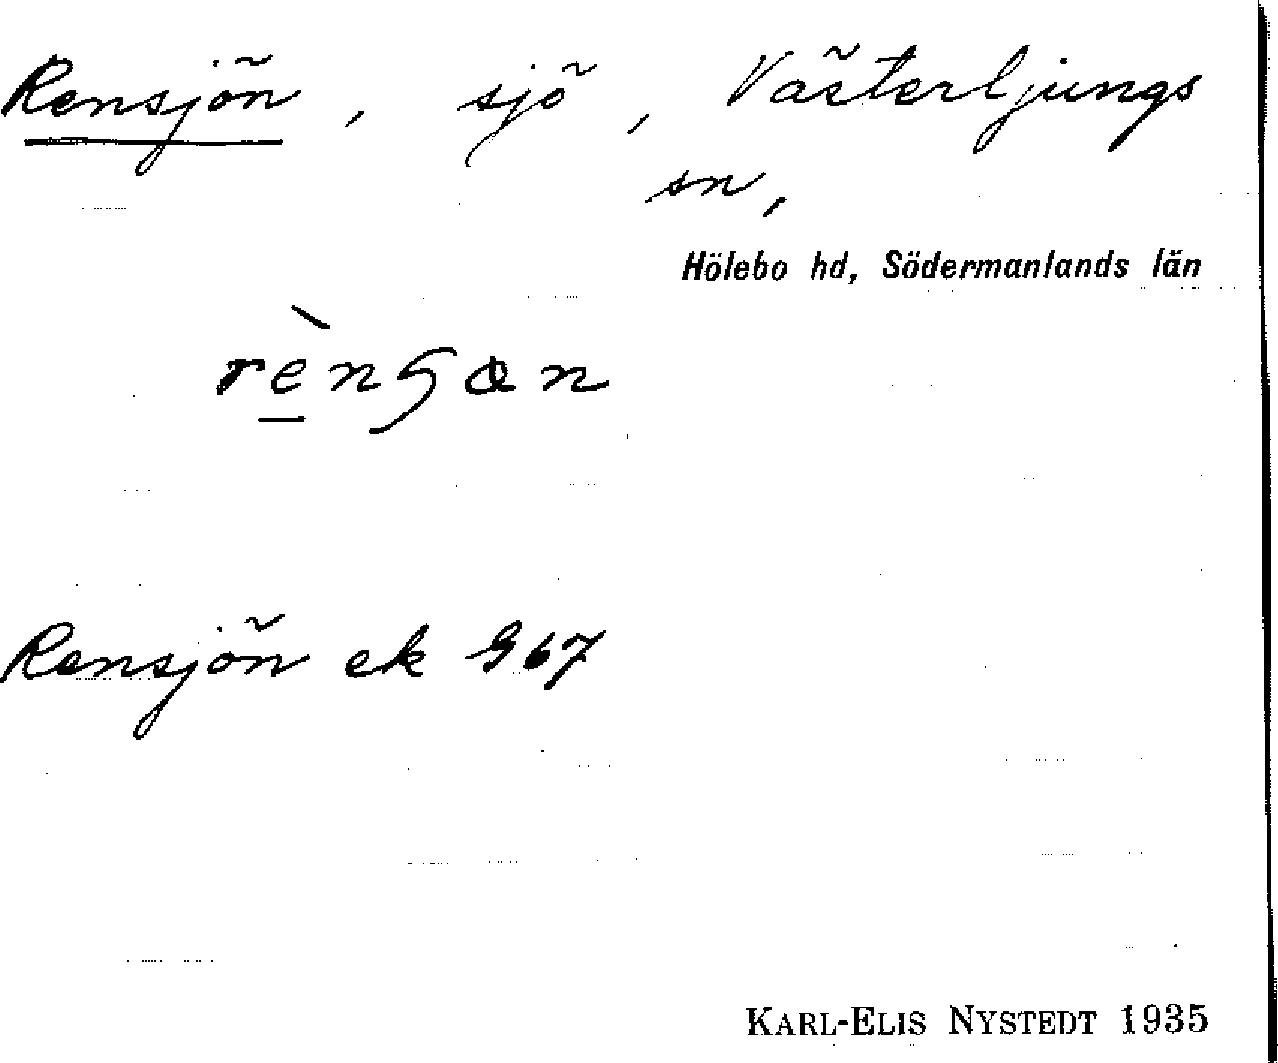 Rensjön, sjö, Västerljungs
sn,
Hölebo hd, Södermanlands län
Rensjön ek 967
KARL-ELIS NYSTEDT 1935